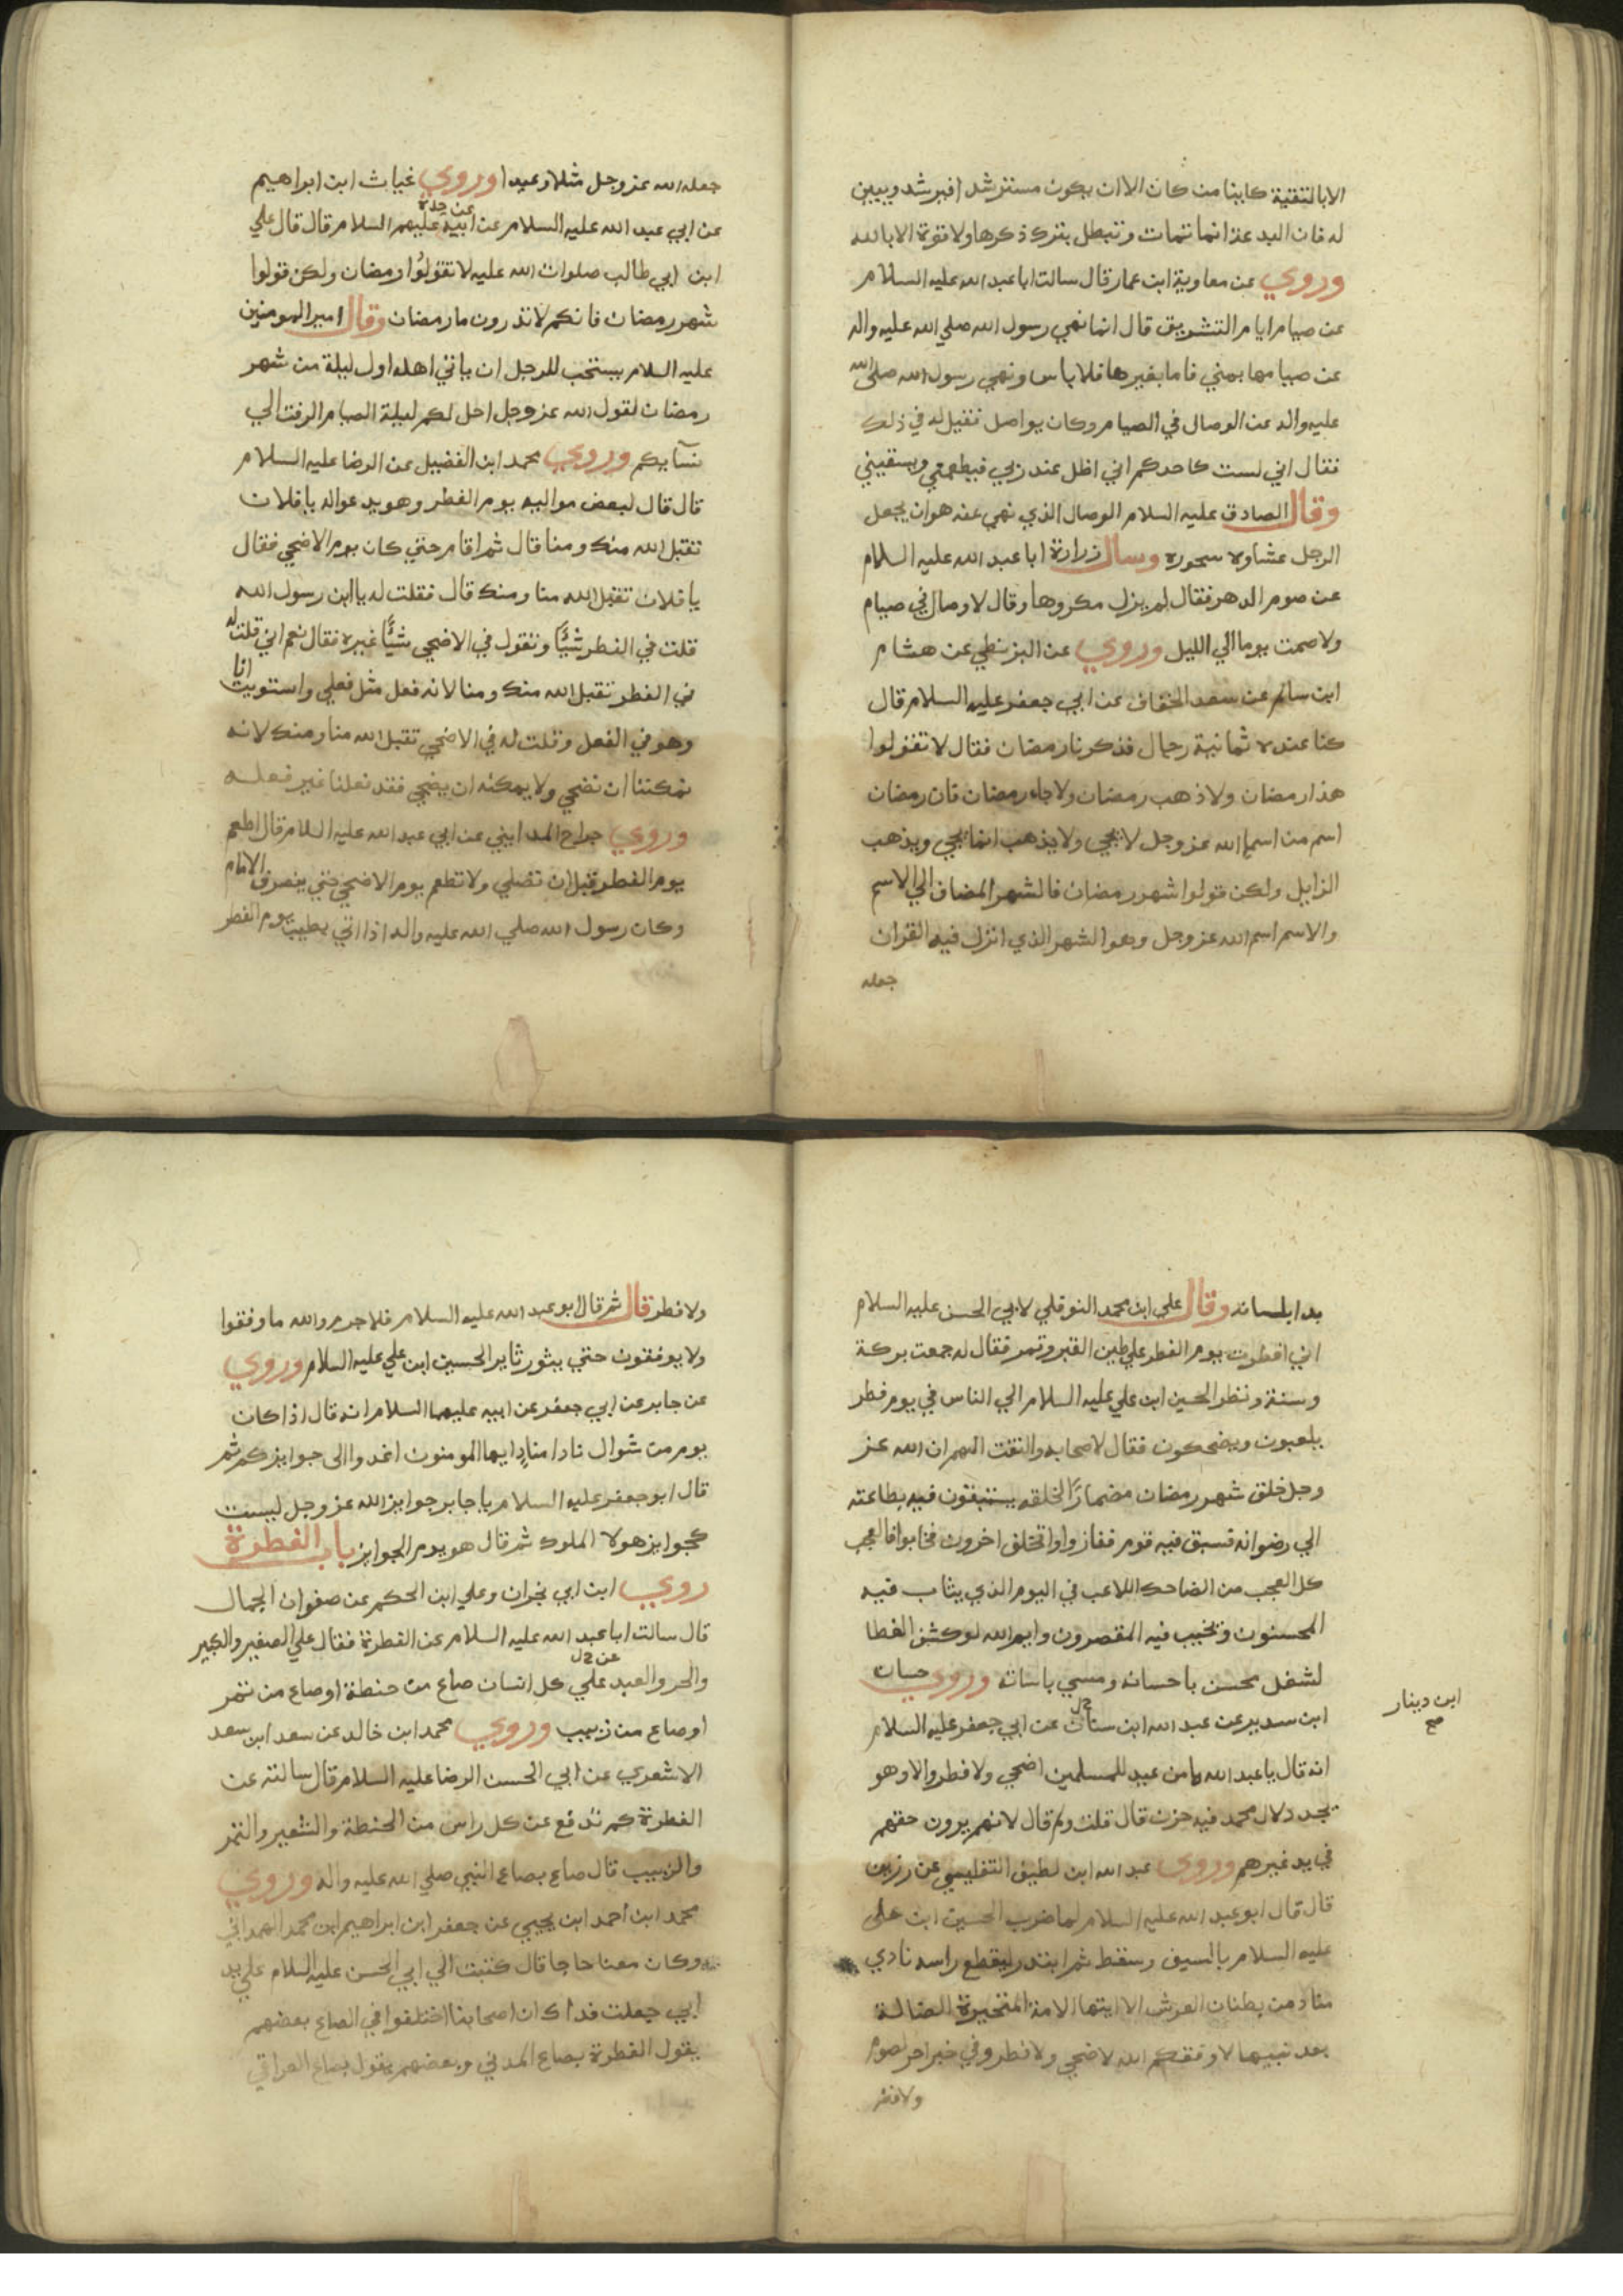 الا بالتقية كاينا من كان الا ان يكون مسترشدا فيرشد ويبين
له فان البدعة انما تمات وتبطل بترك ذكرها ولا قوة الا بالله
وروي عن معاوية ابن عمار قال سالت ابا عبد الله عليه السلام
عن صيام ايام التشريق قال انما نهي رسول الله صلي الله عليه واله
عن صيامها بمني فاما بغيرها فلا باس ونهي رسول الله صلي الله
عليه واله عن الوصال في الصيام وكان يواصل فقيل له في ذلك
فقال اني لست كاحدكم اني اظل عند ربي فيطعمني ويسقيني
وقال الصادق عليه السلام الوصال الذي نهي عنه هو ان يجعل
الرجل عشاوه سحوره وسال زرارة ابا عبد الله عليه السلام
عن صوم الدهر فقال لم يزل مكروها وقال لا وصال في صيام
ولا صمت يوما الي الليل وروي عن البزنطي عن هشام
ابن سالم عن سعد الخفاف عن ابي جعفر عليه السلام قال
كنا عنده ثمانية رجال فذكرنا رمضان فقال لا تقولوا
هذا رمضان ولا ذهب رمضان ولا جاء رمضان فان رمضان
اسم من اسماء الله عز وجل لا يجي ولا يذهب انما يجي ويذهب
الزايل ولكن قولوا شهر رمضان فالشهر المضاف الي الاسم
والاسم اسم الله عز وجل وهو الشهر الذي انزل فيه القران
جعله
جعله الله عز وجل مثلا وعيدا وروي غياث ابن ابراهيم
عن ابي عبد الله عليه السلام عن ابيه عن جده عليهم السلام قال قال علي
ابن ابي طالب صلوات الله عليه لا تقولوا رمضان ولكن قولوا
شهر رمضان فانكم لا تدرون ما رمضان وقال امير المومنين
عليه السلام يستحب للرجل ان ياتي اهله اول ليلة من شهر
رمضان لقول الله عز وجل احل لكم ليلة الصيام الرفث الي
نسآيكم وروي محمد ابن الفضيل عن الرضا عليه السلام
قال قال لبعض مواليه يوم الفطر وهو يدعوا له يا فلان
تقبل الله منك ومنا قال ثم اقام حتي كان يوم الاضحي فقال
يا فلان تقبل الله منا ومنك قال فقلت له يا ابن رسول الله
قلت في الفطر شيًا وتقول في الاضحي شيًا غيره فقال نعم اني قلت له
في الفطر تقبل الله منك ومنا لانه فعل مثل فعلي واستويت انا
وهو في الفعل وقلت له في الاضحي تقبل الله منا ومنك لانه
يمكننا ان نضحي ولا يمكنه ان يضحي فقد فعلنا غير فعله
وروي جراح المدايني عن ابي عبد الله عليه السلام قال اطعم
يوم الفطر قبل ان تصلي ولا تطعم يوم الاضحي حتي ينصرف الامام
وكان رسول الله صلي الله عليه واله اذا اتي بطيب يوم الفطر
بدا بلسانه وقال علي ابن محمد النوفلي لابي الحسن عليه السلام
اني افطرت يوم الفطر علي طين القبر وتمر فقال له جمعت بركة
وسنة ونظر الحسين ابن علي عليه السلام الي الناس في يوم فطر
يلعبون ويضحكون فقال لاصحابه والتفت اليهم ان الله عز
وجل خلق شهر رمضان مضمارًا لخلقه يستبقون فيه بطاعته
الي رضوانه فسبق فيه قوم ففازوا وتخلف اخرون فخابوا فالعجب
كل العجب من الضاحك اللاعب في اليوم الذي يثاب فيه
المحسنون ويخيب فيه المقصرون وايم الله لو كشف الغطا
لشغل محسن باحسانه ومسي باساته وروي حنان
ابن سدير عن عبد الله ابن سنان عن ابي جعفر عليه السلام
ابن دينار
صح
انه قال يا عبد الله ما من عيد للمسلمين اضحي ولا فطر والا وهو
يجدد لال محمد فيه حزن قال قلت ولم قال لانهم يرون حقهم
في يد غيرهم وروي عبد الله ابن لطيف التفليسي عن رزين
قال قال ابو عبد الله عليه السلام لما ضرب الحسين ابن علي
عليه السلام بالسيف وسقط ثم ابتدر ليقطع راسه نادي
مناد من بطنان العرش الا ايتها الامة المتحيرة الضالة
بعد نبيها لا وفقكم الله لاضحي ولا فطر وفي خبر اخر لصوم
ولا فطر
ولا فطر قال ثم قال ابو عبد الله عليه السلام فلا جرم والله ما وفقوا
ولا يوفقون حتي يثور ثاير الحسين ابن علي عليه السلام وروي
عن جابر عن ابي جعفر عن ابيه عليهما السلام انه قال اذا كان
يوم من شوال نادا منادٍ ايها المومنون اغدوا الى جوايزكم ثم
قال ابو جعفر عليه السلام يا جابر جوايز الله عز وجل ليست
كجوايز هولا الملوك ثم قال هو يوم الجوايز باب الفطرة
روي ابن ابي نجران وعلي ابن الحكم عن صفوان الجمال
قال سالت ابا عبد الله عليه السلام عن الفطرة فقال علي الصغير والكبير
والحر والعبد علي كل انسان صاع من حنطة او صاع من تمر
او صاع من زبيب وروي محمد ابن خالد عن سعد ابن سعد
الاشعري عن ابي الحسن الرضا عليه السلام قال سالته عن
الفطرة كم تدفع عن كل راس من الحنطة والشعير والتمر
والزبيب قال صاع بصاع النبي صلي الله عليه واله وروي
محمد ابن احمد ابن يحيي عن جعفر ابن ابراهيم ابن محمد الهمداني
وكان معنا حاجا قال كتبت الي ابي الحسن عليه السلام علي يد
ابي جعلت فداك ان اصحابنا اختلفوا في الصاع بعضهم
يقول الفطرة بصاع المدني وبعضهم يقول بصاع العراقي